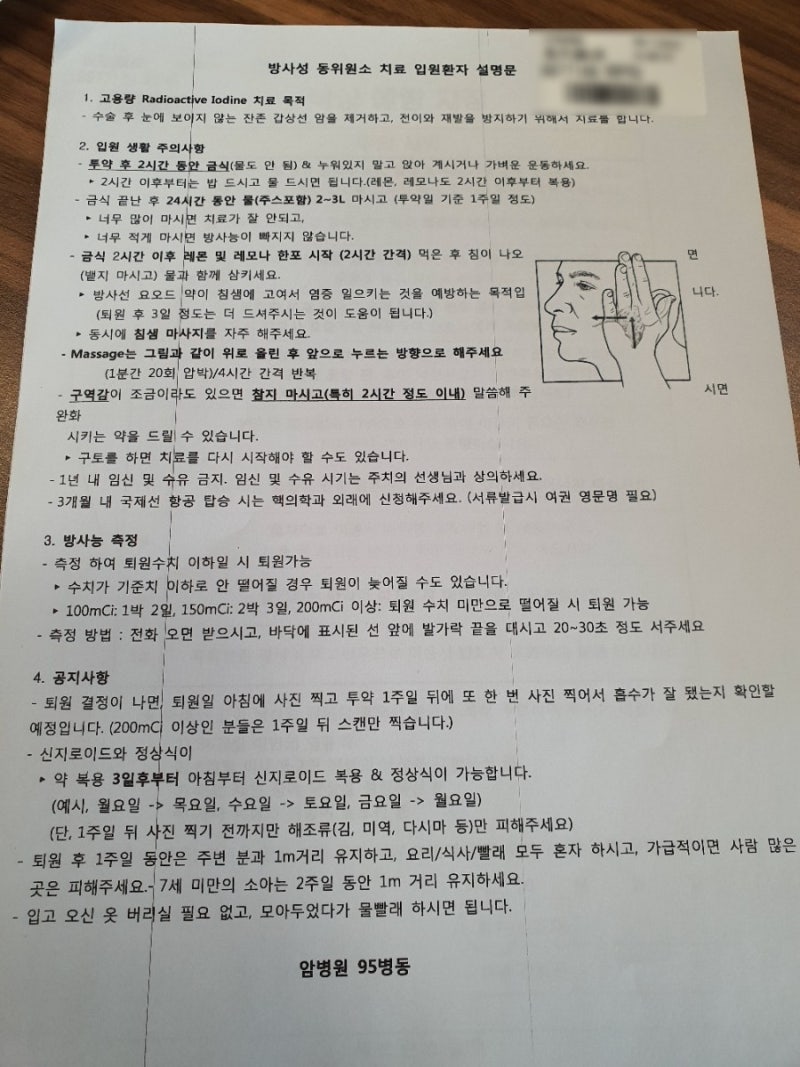 방사성 동위원소 치료 입원환자 설명문
1. 고용량 Radioactive Iodine 치료 목적
- 수술 후 눈에 보이지 않는 잔존 갑상선 암을 제거하고, 전이와 재발을 방지하기 위해서 치료를 합니다.
2. 입원 생활 주의사항
- 투약 후 2시간 동안 금식(물도 안 됨) & 누워있지 말고 앉아 계시거나 가벼운 운동하세요.
▸ 2시간 이후부터는 밥 드시고 물 드시면 됩니다.(레몬, 레모나도 2시간 이후부터 복용)
- 금식 끝난 후 24시간 동안 물(주스포함) 2~3L 마시고 (투약일 기준 1주일 정도)
▸ 너무 많이 마시면 치료가 잘 안되고,
▸ 너무 적게 마시면 방사능이 빠지지 않습니다.
- 금식 2시간 이후 레몬 및 레모나 한포 시작 (2시간 간격) 먹은 후 침이 나오 면
(뱉지 마시고) 물과 함께 삼키세요.
▸ 방사선 요오드 약이 침샘에 고여서 염증 일으키는 것을 예방하는 목적입 니다.
(퇴원 후 3일 정도는 더 드셔주시는 것이 도움이 됩니다.)
▸ 동시에 침샘 마사지를 자주 해주세요.
- Massage는 그림과 같이 위로 올린 후 앞으로 누르는 방향으로 해주세요
(1분간 20회 압박)/4시간 간격 반복
- 구역감이 조금이라도 있으면 참지 마시고(특히 2시간 정도 이내) 말씀해 주 시면
완화
시키는 약을 드릴 수 있습니다.
▸ 구토를 하면 치료를 다시 시작해야 할 수도 있습니다.
- 1년 내 임신 및 수유 금지. 임신 및 수유 시기는 주치의 선생님과 상의하세요.
- 3개월 내 국제선 항공 탑승 시는 핵의학과 외래에 신청해주세요. (서류발급시 여권 영문명 필요)
3. 방사능 측정
- 측정 하여 퇴원수치 이하일 시 퇴원가능
▸ 수치가 기준치 이하로 안 떨어질 경우 퇴원이 늦어질 수도 있습니다.
▸ 100mCi: 1박 2일, 150mCi: 2박 3일, 200mCi 이상: 퇴원 수치 미만으로 떨어질 시 퇴원 가능
- 측정 방법 : 전화 오면 받으시고, 바닥에 표시된 선 앞에 발가락 끝을 대시고 20~30초 정도 서주세요
4. 공지사항
- 퇴원 결정이 나면, 퇴원일 아침에 사진 찍고 투약 1주일 뒤에 또 한 번 사진 찍어서 흡수가 잘 됐는지 확인할
예정입니다. (200mCi 이상인 분들은 1주일 뒤 스캔만 찍습니다.)
- 신지로이드와 정상식이
▸ 약 복용 3일후부터 아침부터 신지로이드 복용 & 정상식이 가능합니다.
(예시, 월요일 -> 목요일, 수요일 -> 토요일, 금요일 -> 월요일)
(단, 1주일 뒤 사진 찍기 전까지만 해조류(김, 미역, 다시마 등)만 피해주세요)
- 퇴원 후 1주일 동안은 주변 분과 1m거리 유지하고, 요리/식사/빨래 모두 혼자 하시고, 가급적이면 사람 많은
곳은 피해주세요.- 7세 미만의 소아는 2주일 동안 1m 거리 유지하세요.
- 입고 오신 옷 버리실 필요 없고, 모아두었다가 물빨래 하시면 됩니다.
암병원 95병동